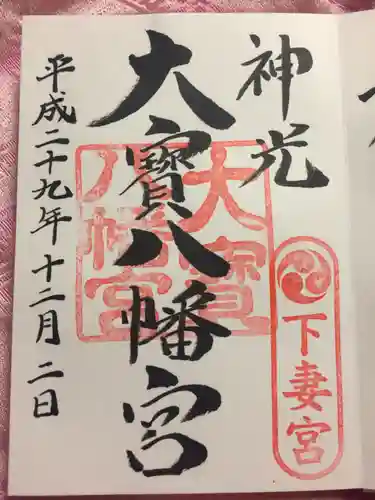 神光
大寳八幡宮
平成二十九年十二月二日
大宝
八幡宮
下妻宮